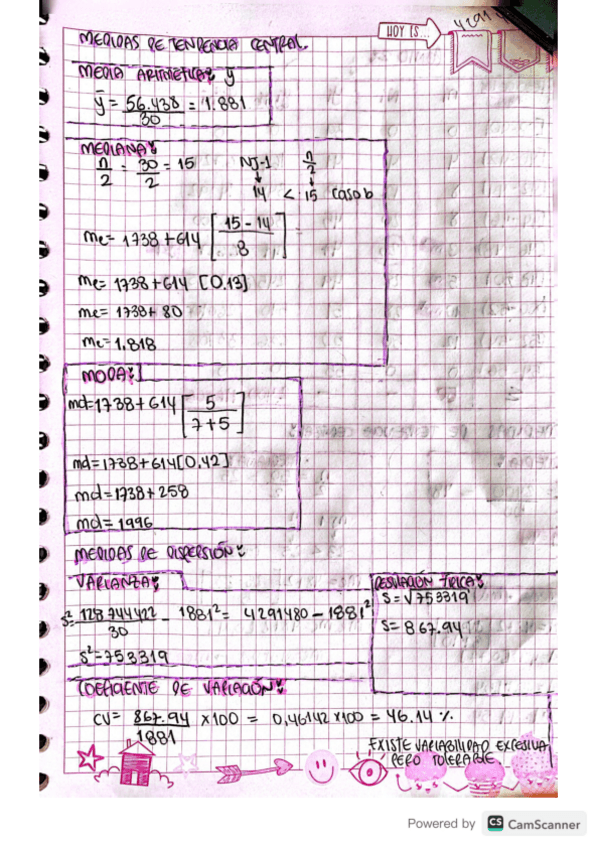 HOY ES...
4291
MEDIDAS DE TENDENCIA CENTRAL.
MEDIA ARITMETICA: ȳ
ȳ = 56.438 / 30 = 1.881
MEDIANA:
n/2 = 30/2 = 15 NJ-1 n/2
14 < 15 Caso b
me= 1738+614 [15-14 / 8] =
me= 1738+614 [0.13]
me= 1738+ 80
me= 1.818
MODA:
md=1738+614 [5 / 7+5]
md=1738+614[0.42]
md=1738+258
md= 1996
MEDIDAS DE DISPERSIÓN:
VARIANZA:
S²= 128 744 422 / 30 - 1881² = 4291480 - 1881²
S²=753319
DESVIACIÓN TÍPICA:
S=√753319
S= 867.94
COEFICIENTE DE VARIACIÓN:
CV= 867.94 / 1881 x100 = 0,46142 x100 = 46.14 %.
EXISTE VARIABILIDAD EXCESIVA
PERO TOLERABLE
Powered by CS CamScanner